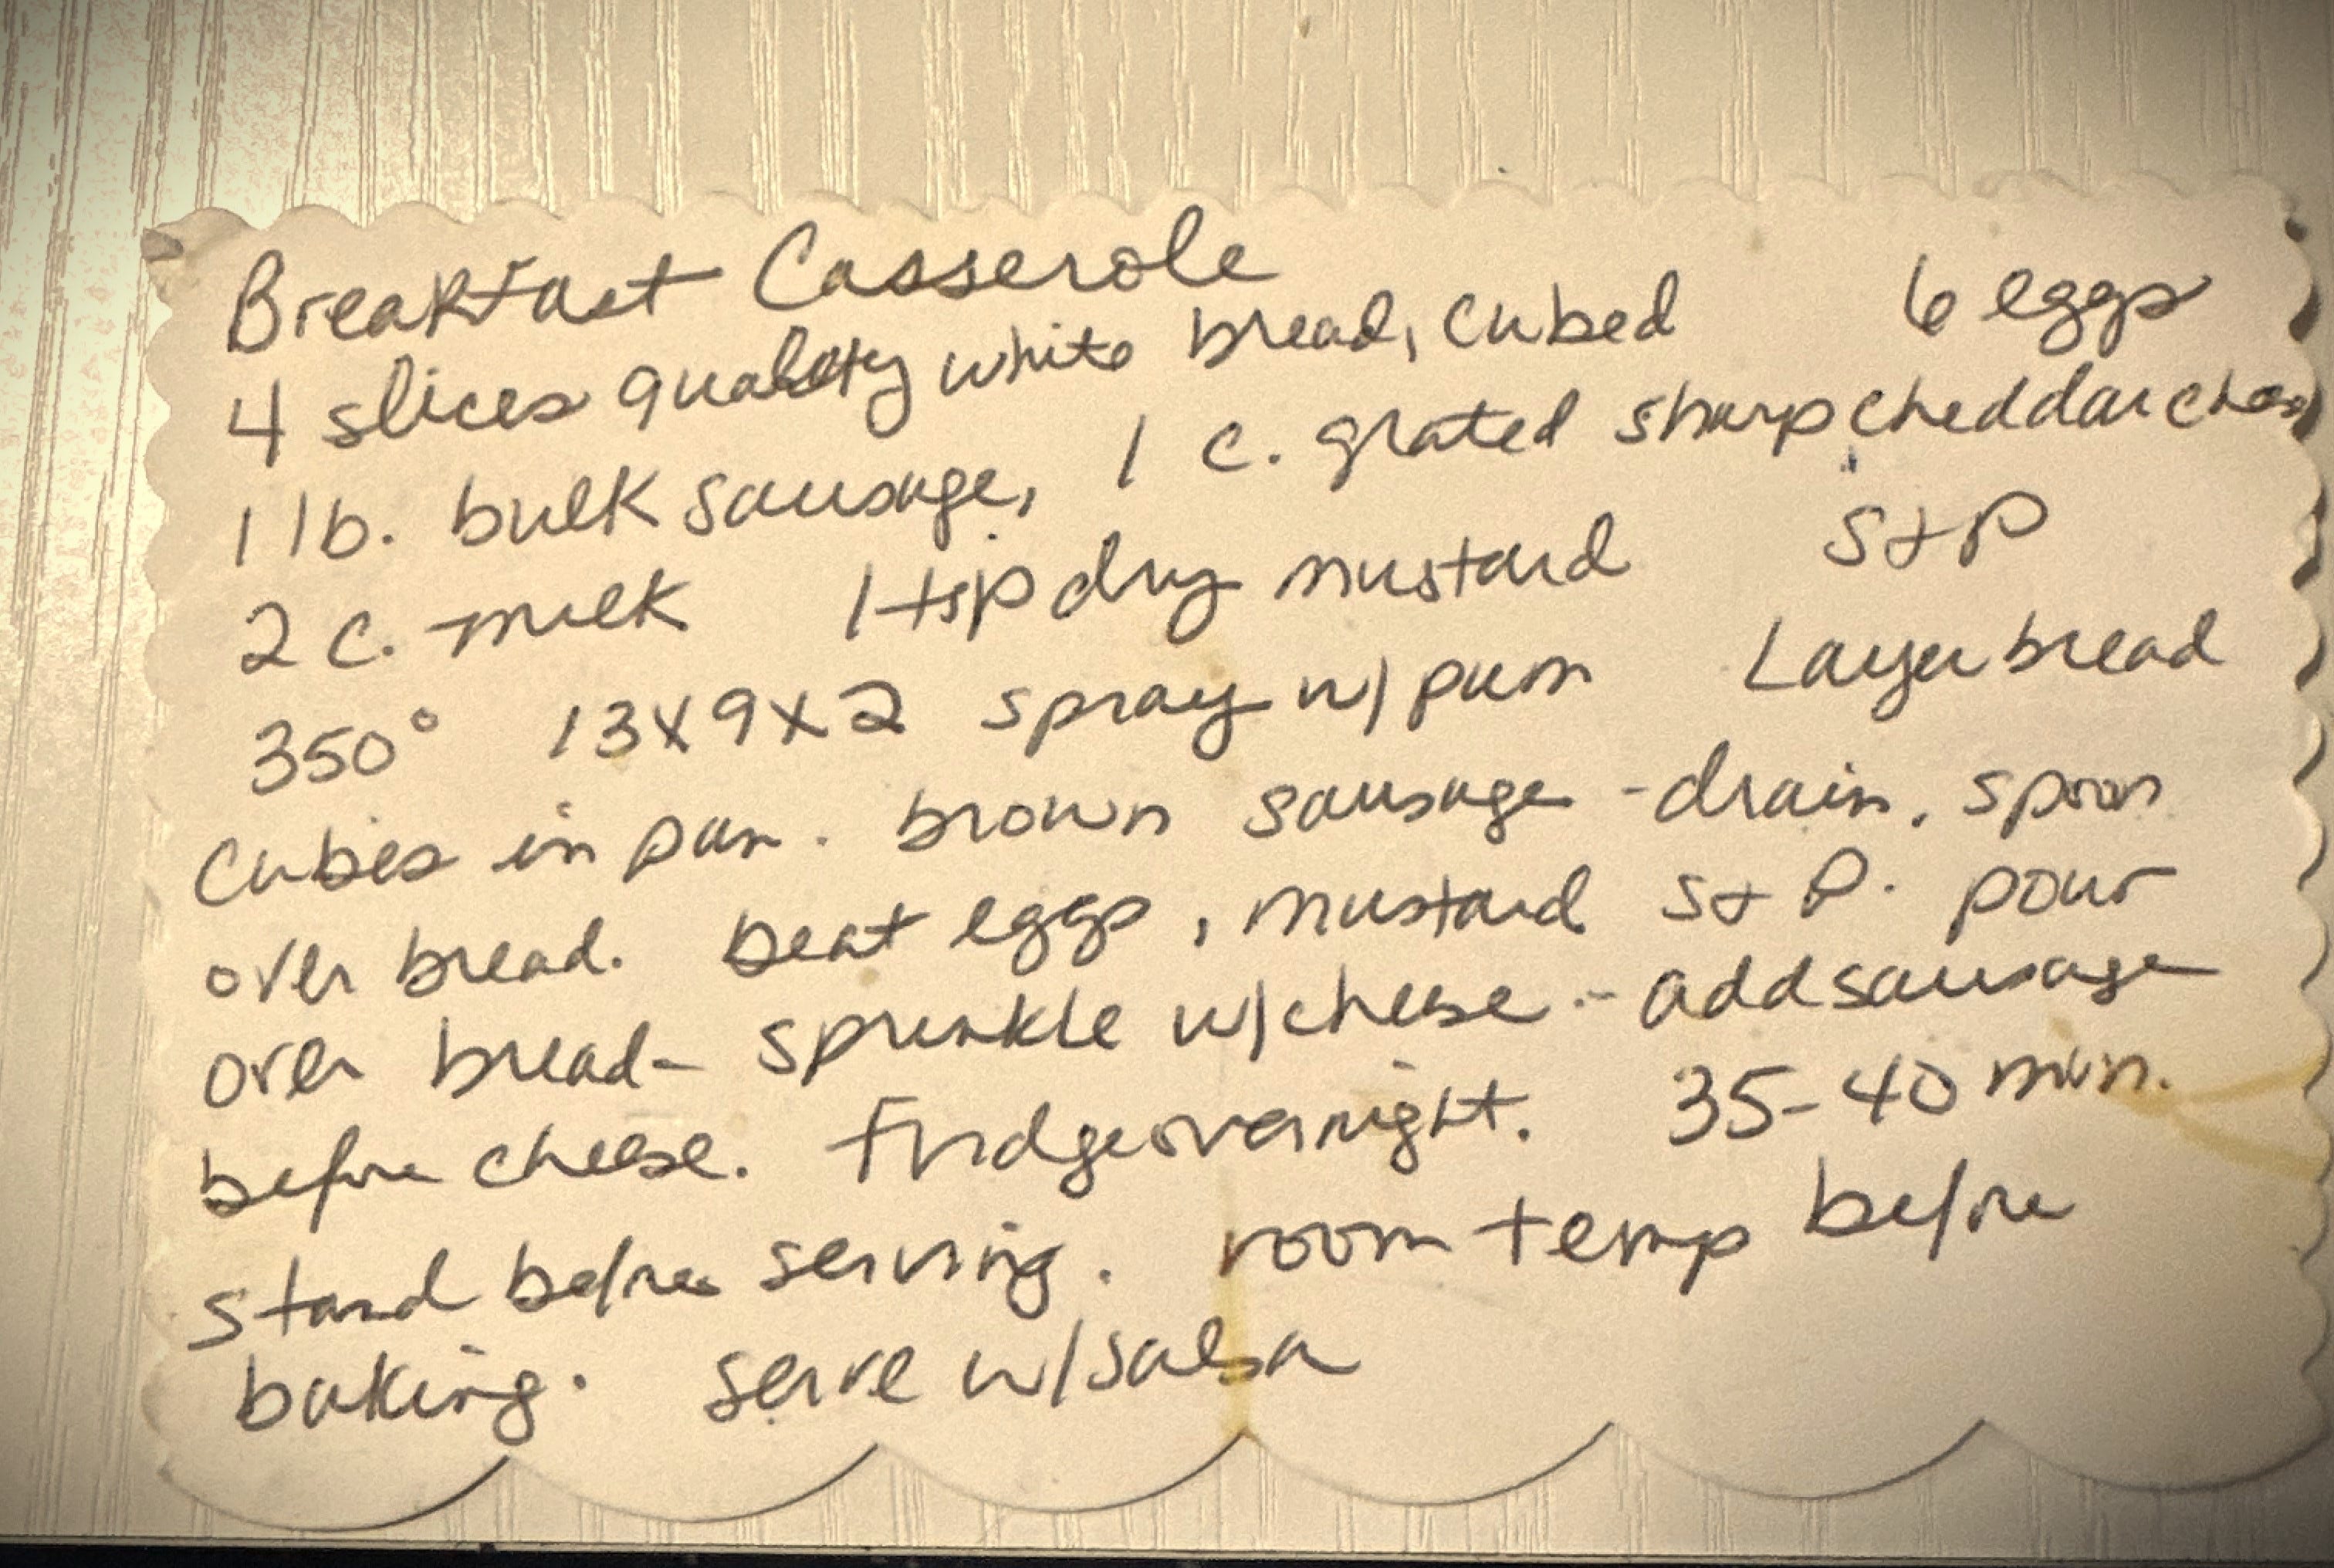 Breakfast Casserole
4 slices quality white bread, cubed 6 eggs
1 lb. bulk sausage, 1 c. grated sharp cheddar cheese
2 c. milk 1 tsp dry mustard S+P
350° 13x9x2 spray w/ pam Layer bread
cubes in pan. brown sausage - drain. spoon
over bread. beat eggs, mustard S+P. pour
over bread - sprinkle w/cheese - add sausage
before cheese. Fridge overnight. 35-40 min.
stand before serving. room temp before
baking. serve w/salsa